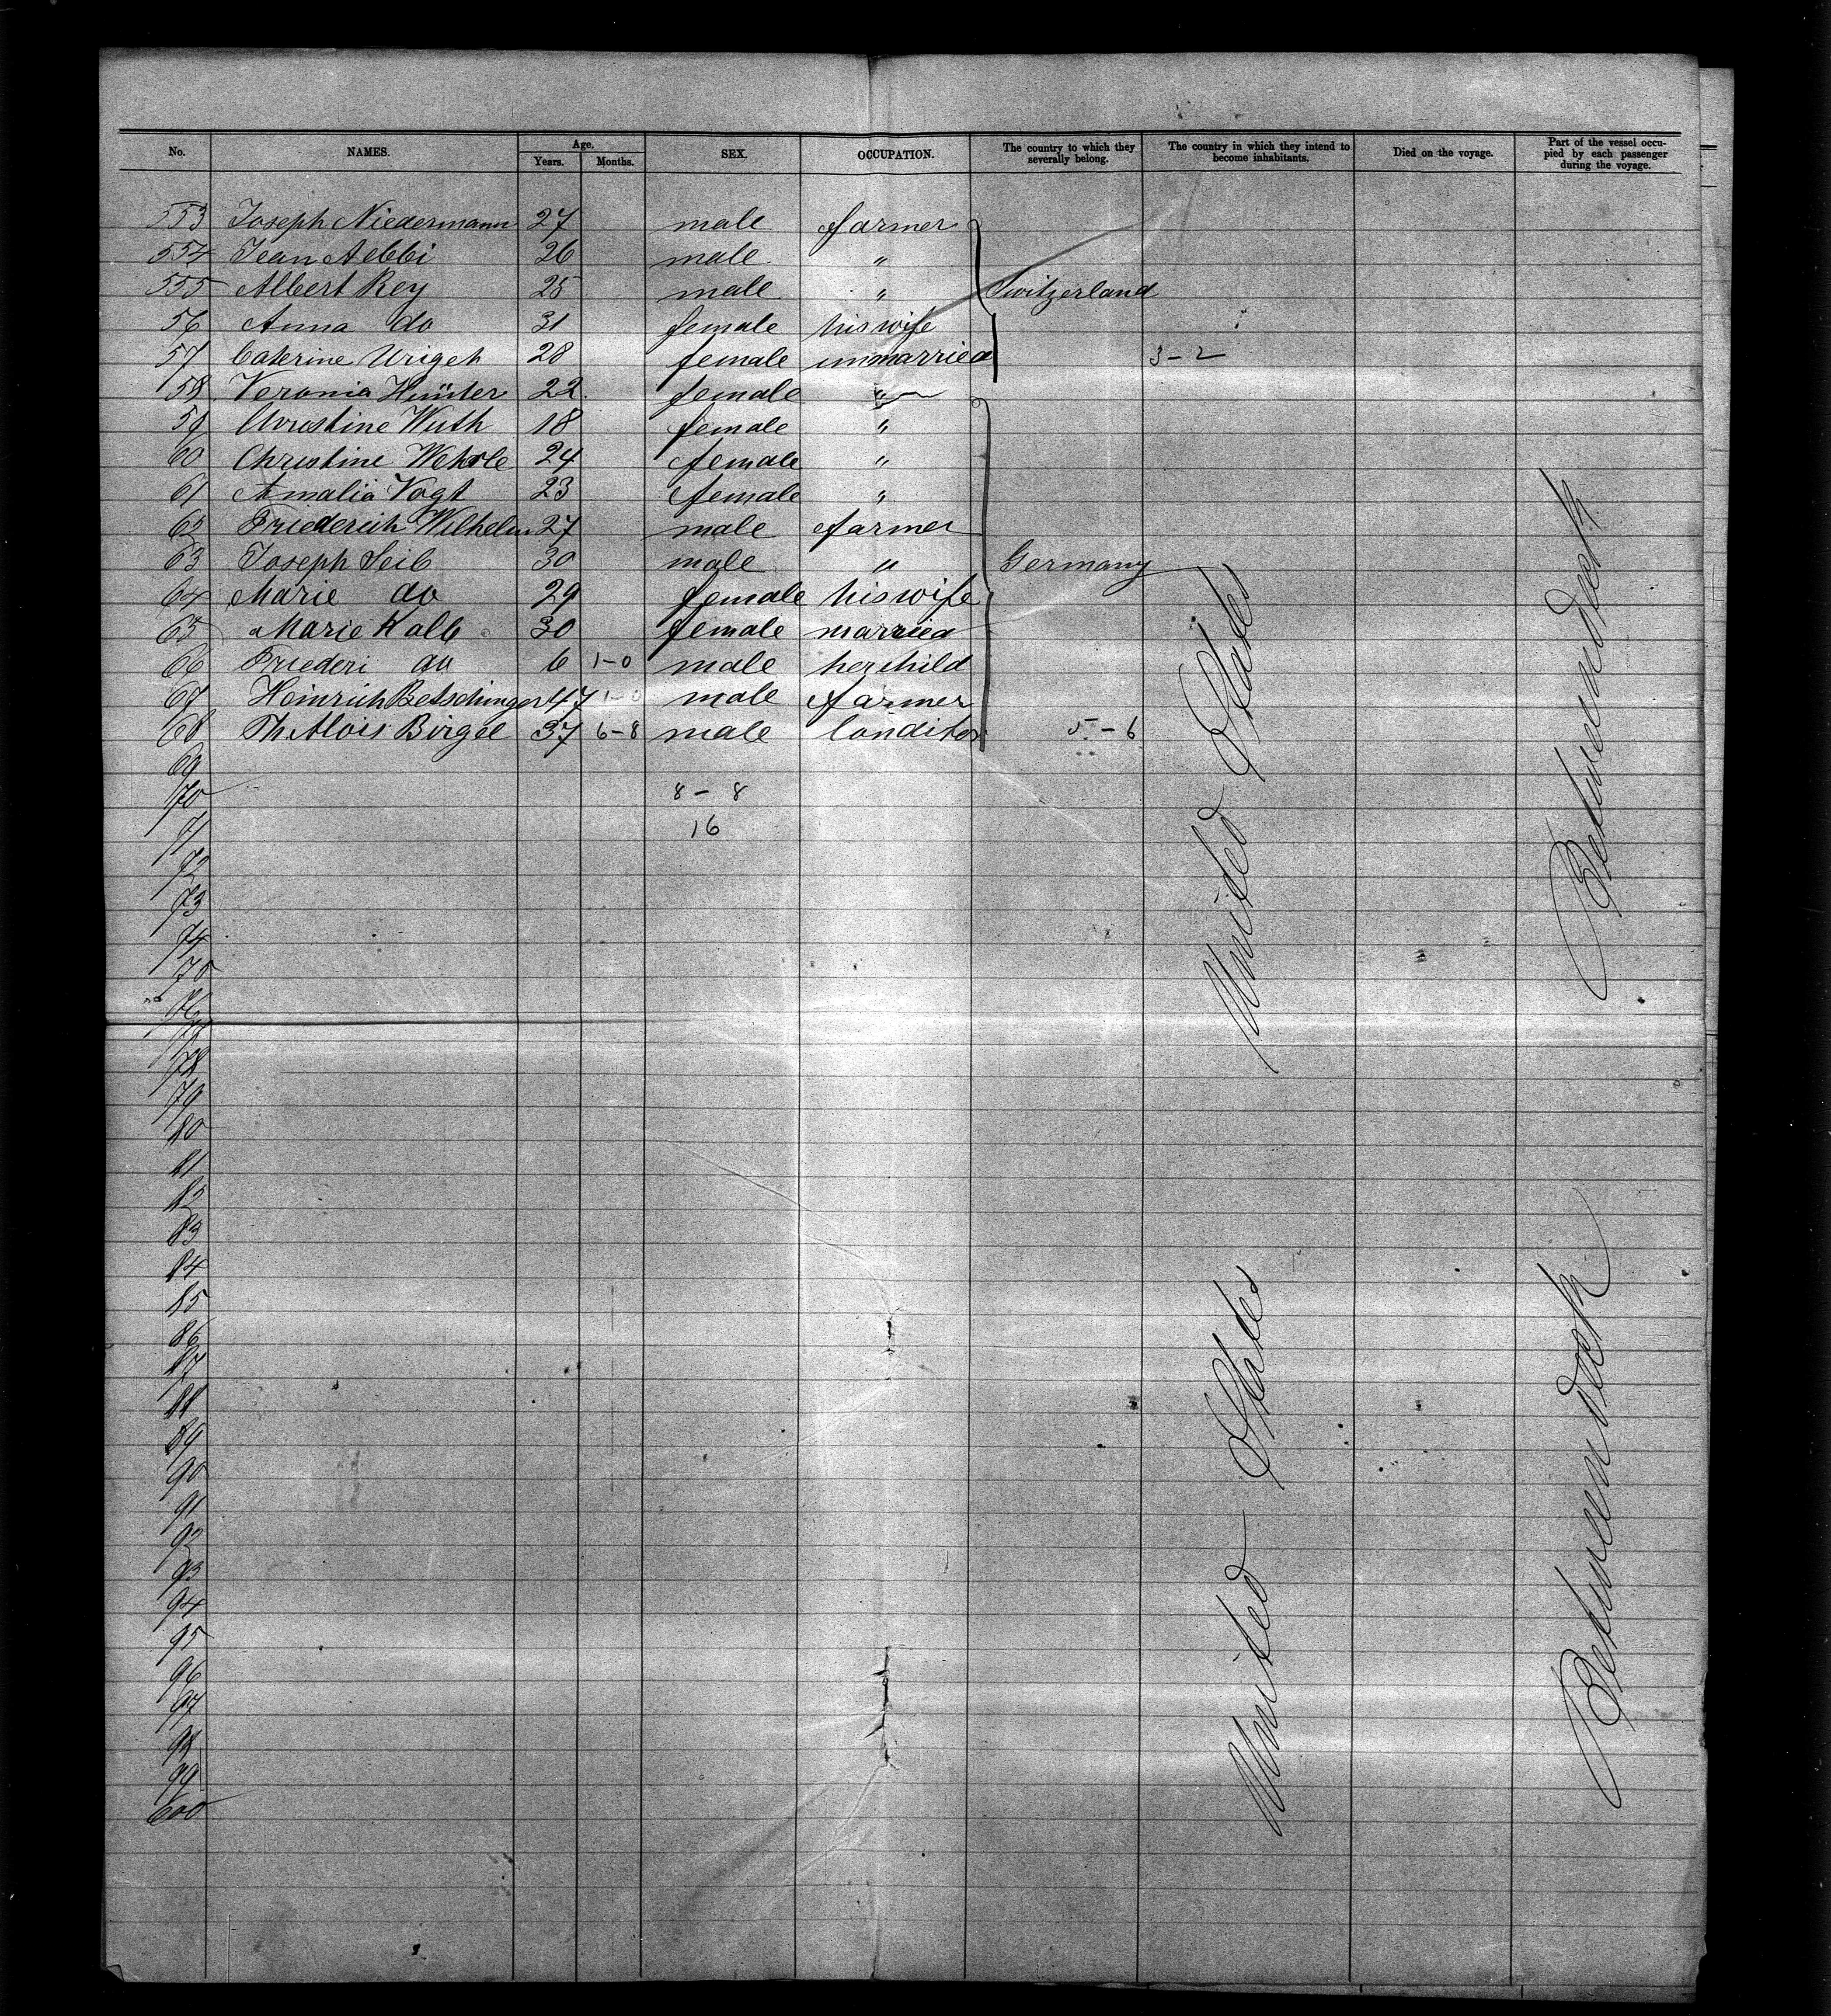 No. NAMES. Age. Years. Months. SEX. OCCUPATION. The country to which they severally belong. The country in which they intend to become inhabitants. Died on the voyage. Part of the vessel occupied by each passenger during the voyage.
553 Joseph Niedermann 27 male farmer
554 Jean Aebbi 26 male "
555 Albert Rey 25 male " Switzerland
56 Anna do 31 female his wife
57 Caterine 28 female unmarried 3-2
58 Verania Hünter 22 female "
59 Christine Wuth 18 female "
60 Christine Wehrle 24 female "
61 Amalia Vogt 23 female "
62 Friederich Wilhelm 27 male farmer
63 Joseph Seib 30 male " Germany
64 Marie do 29 female his wife
65 Marie Kalb 30 female married
66 Friederi do 6 1-0 male her child
67 Heinrich Betschinger 47 1-0 male farmer
68 Th. Alois Birgel 37 6-8 male Conditor 5-6
69
70 8 - 8
71 16
72
73
74
75
76
77
78
79
80
81
82
83
84
85
86
87
88
89
90
91
92
93
94
95
96
97
98
99
600
United States
Between deck
United States
Between deck